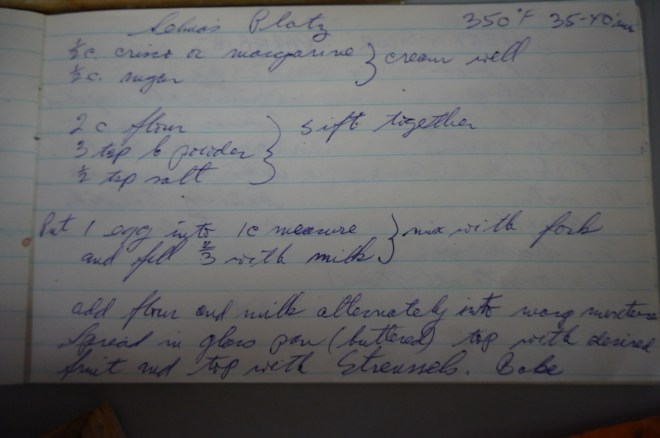 Selma's Platz 350°F 35-40 min
½ c. crisco or margarine } cream well
½ c. sugar
2 c flour } sift together
3 tsp b powder
½ tsp salt
Put 1 egg into 1c measure } mix with fork
and fill ⅔ with milk
add flour and milk alternately into marg mixture
Spread in glass pan (buttered) top with desired
fruit and top with Streussels. Bake